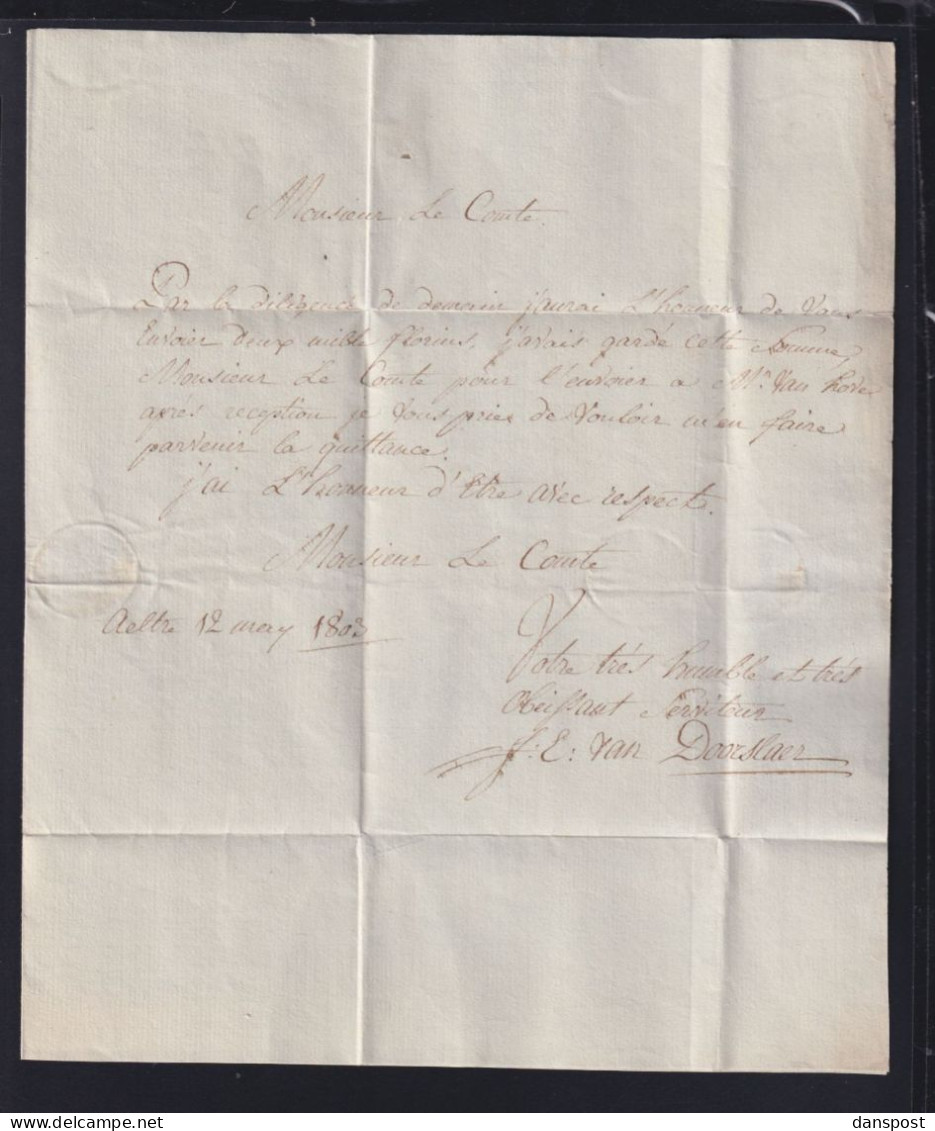 Monsieur Le Comte.
Par la diligence de demain j'aurai L'honneur de Vous
Envoier deux mille florins, j'avais gardé cette Somme,
Monsieur Le Comte pour l'envoier a Mr. Van hove
après reception je Vous prie de Vouloir m'en faire
parvenir la quittance.
j'ai L'honneur d'Etre avec respect.
Monsieur Le Comte
Aeltre 12 may 1803
Votre très humble et très
Obeissant Serviteur
J: E: Van Doorslaer
danspost